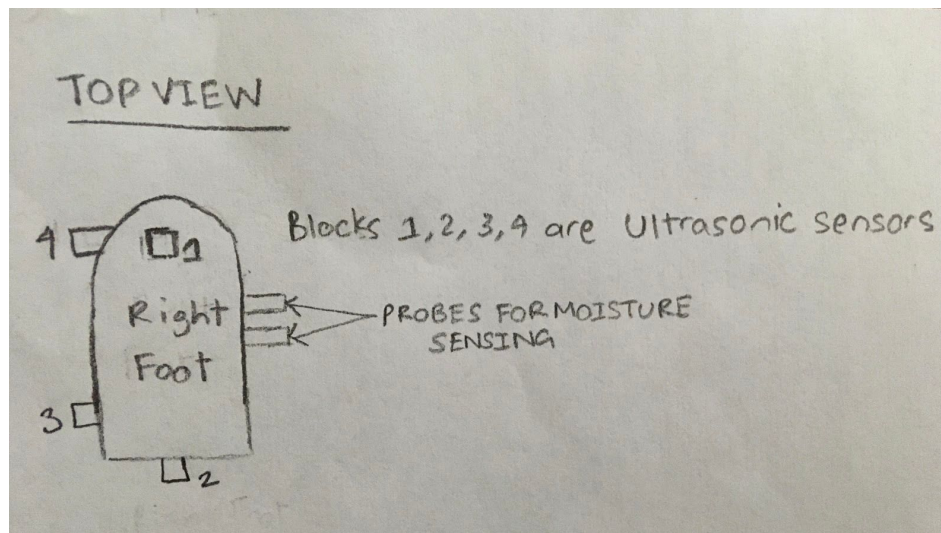 TOP VIEW
Blocks 1,2,3,4 are Ultrasonic sensors
4
1
Right
Foot
PROBES FOR MOISTURE
SENSING
3
2